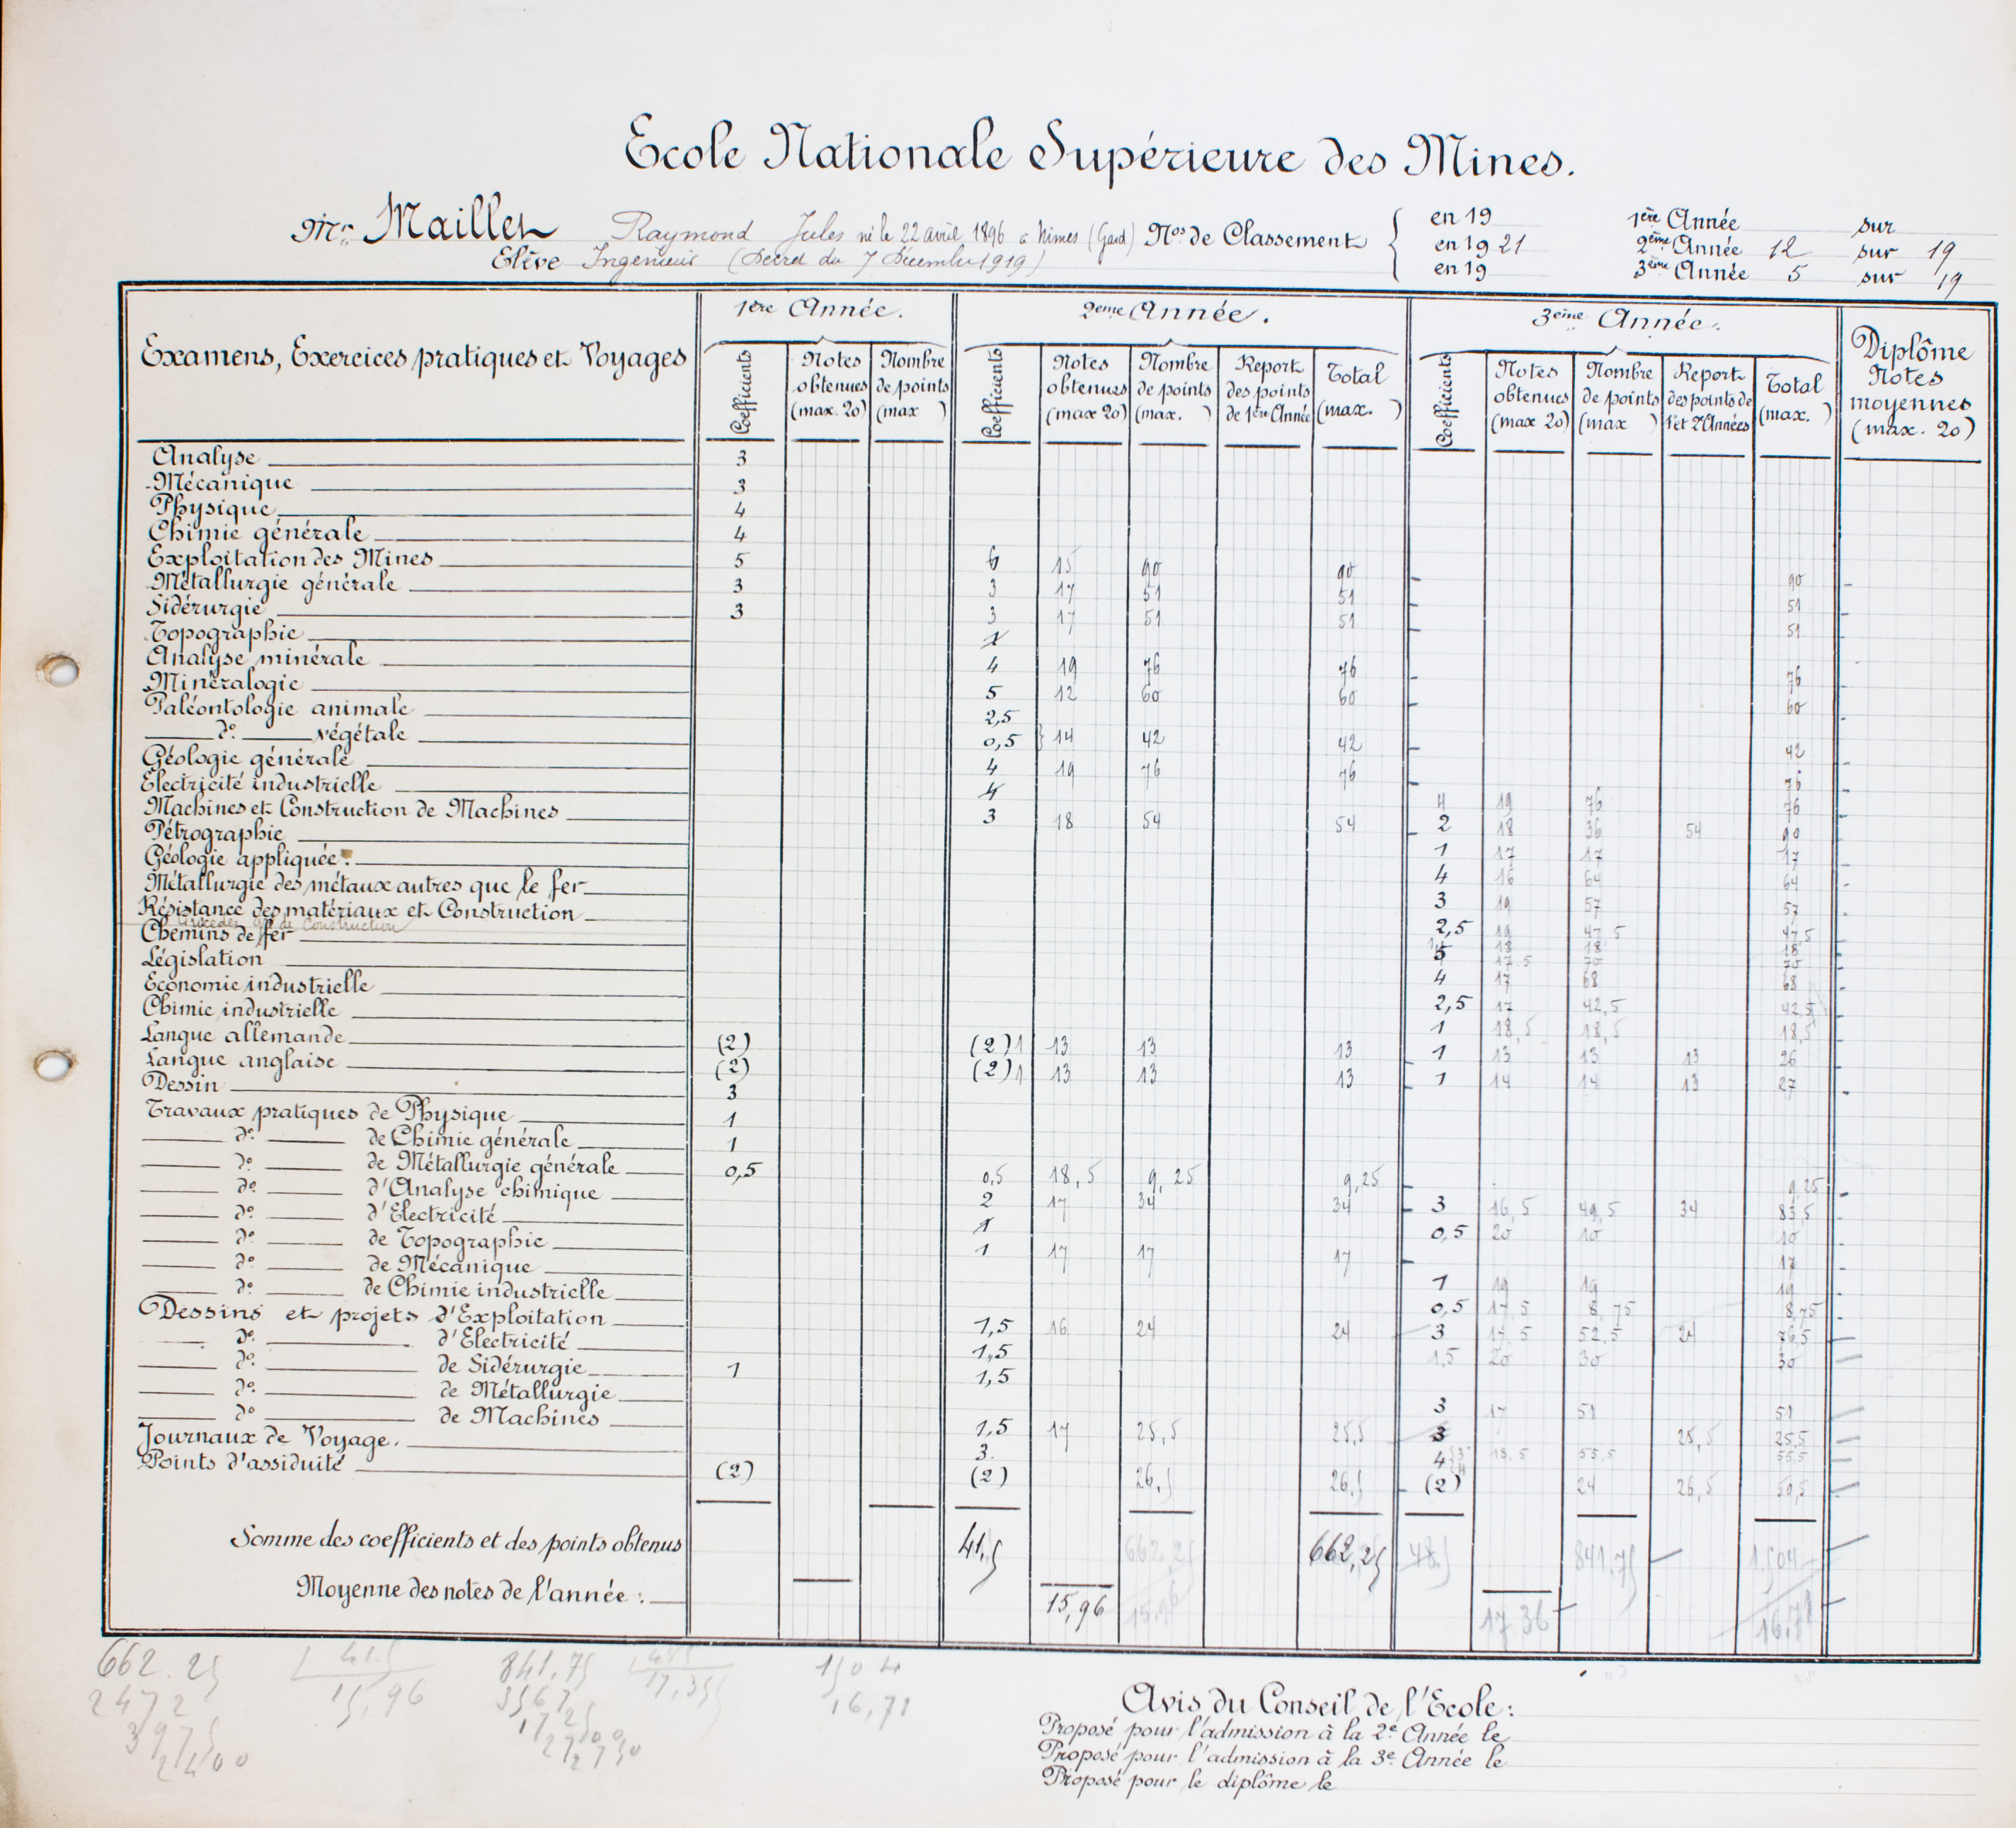 Ecole Nationale Supérieure des Mines.
Mr. Maillet Raymond Jules né le 22 avril 1896 à Nimes (Gard) Nos de Classement en 19 1ère Année sur
en 19 21 2ème Année 12 sur 19
Elève Ingénieur (Décret du 7 Décembre 1919) en 19 3ème Année 5 sur 19
Examens, Exercices pratiques et Voyages 1ère Année. 2eme Année. 3eme Année. Diplôme Notes moyennes (max. 20)
Coefficients Notes obtenues (max. 20) Nombre de points (max ) Coefficients Notes obtenues (max 20) Nombre de points (max. ) Report des points de 1ère Année Total (max. ) Coefficients Notes obtenues (max 20) Nombre de points (max ) Report des points de 1e et 2e Années Total (max. )
Analyse 3
Mécanique 3
Physique 4
Chimie générale 4
Exploitation des Mines 5 6 15 90 90 90
Métallurgie générale 3 3 17 51 51 51
Sidérurgie 3 3 17 51 51 51
Topographie 1
Analyse minérale 4 19 76 76 76
Minéralogie 5 12 60 60 60
Paléontologie animale 2,5
do végétale 0,5 14 42 42 42
Géologie générale 4 19 76 76 76
Electricité industrielle 4 4 19 76 76
Machines et Construction de Machines 3 18 54 54 2 18 36 54 90
Pétrographie 1 17 17 17
Géologie appliquée. 4 16 64 64
Métallurgie des métaux autres que le fer 3 19 57 57
Résistance des matériaux et Construction 2,5 19 47,5 47,5
Procédés de Construction 18 18 18
Chemins de fer 5 17,5 70 70
Législation 4 17 68 68
Economie industrielle 2,5 17 42,5 42,5
Chimie industrielle 1 18,5 18,5 18,5
Langue allemande (2) (2) 1 13 13 13 1 13 13 13 26
Langue anglaise (2) (2) 1 13 13 13 1 14 14 13 27
Dessin 3
Travaux pratiques de Physique 1
do de Chimie générale 1
do de Métallurgie générale 0,5 0,5 18,5 9,25 9,25 9,25
do d'Analyse chimique 2 17 34 34 3 16,5 49,5 34 83,5
do d'Electricité 1 0,5 20 10 10
do de Topographie 1 17 17 17 17
do de Mécanique 1 19 19 19
do de Chimie industrielle 0,5 17,5 8,75 8,75
Dessins et projets d'Exploitation 1,5 16 24 24 3 17,5 52,5 24 76,5
do d'Electricité 1,5 1,5 20 30 30
do de Sidérurgie 1 1,5
do de Métallurgie 3 17 51 51
do de Machines 1,5 17 25,5 25,5 3 25,5 25,5
Journaux de Voyage. 3. 4 3 18,5 55,5 55,5
Points d'assiduité (2) (2) 26,5 26,5 (2) 24 26,5 50,5
Somme des coefficients et des points obtenus 41,5 662,25 662,25 48,5 841,75 1.504
Moyenne des notes de l'année : 15,96 15,96 17.36 16,71
662.25 41,5 841,75 48,5 1504
2472 15,96 3567 17,355 16,71
3975 1725
2400 2700
2750
Avis du Conseil de l'Ecole :
Proposé pour l'admission à la 2e Année le
Proposé pour l'admission à la 3e Année le
Proposé pour le diplôme le